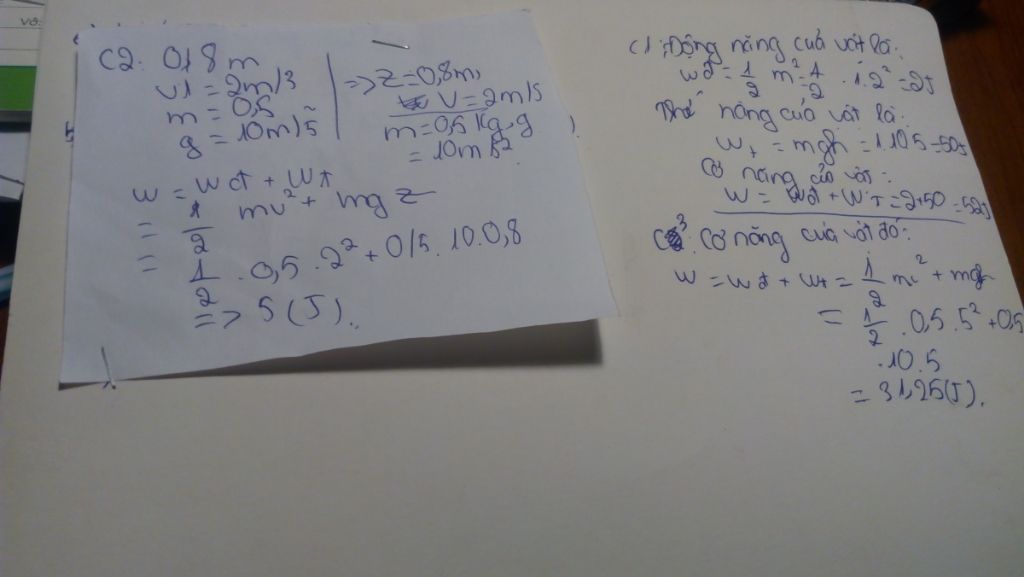 C2: 0,8 m
v1 = 2m/s
m = 0,5
g = 10m/s²
=> Z = 0,8m,
V = 2m/s
m = 0,5 Kg. g
= 10m/s².
W = Wđ + Wt
= 1/2 mv² + mgz
= 1/2 . 0,5 . 2² + 0,5 . 10 . 0,8
=> 5 (J).
C1: Động năng của vật là:
Wđ = 1/2 m² = 1/2 . 1.2² = 2J
Thế năng của vật là:
Wt = mgh = 1.10.5 = 50J
Cơ năng của vật:
W = Wđ + Wt = 2+50 = 52J
C3: Cơ năng của vật đó:
W = Wđ + Wt = 1/2 mv² + mgh
= 1/2 . 0,5 . 5² + 0,5
.10.5
= 31,25(J).